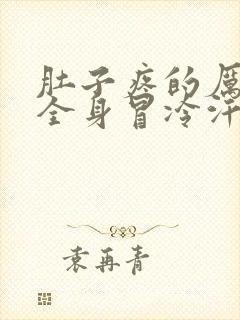 肚子疼的厉
全身冒冷汗
袁再青